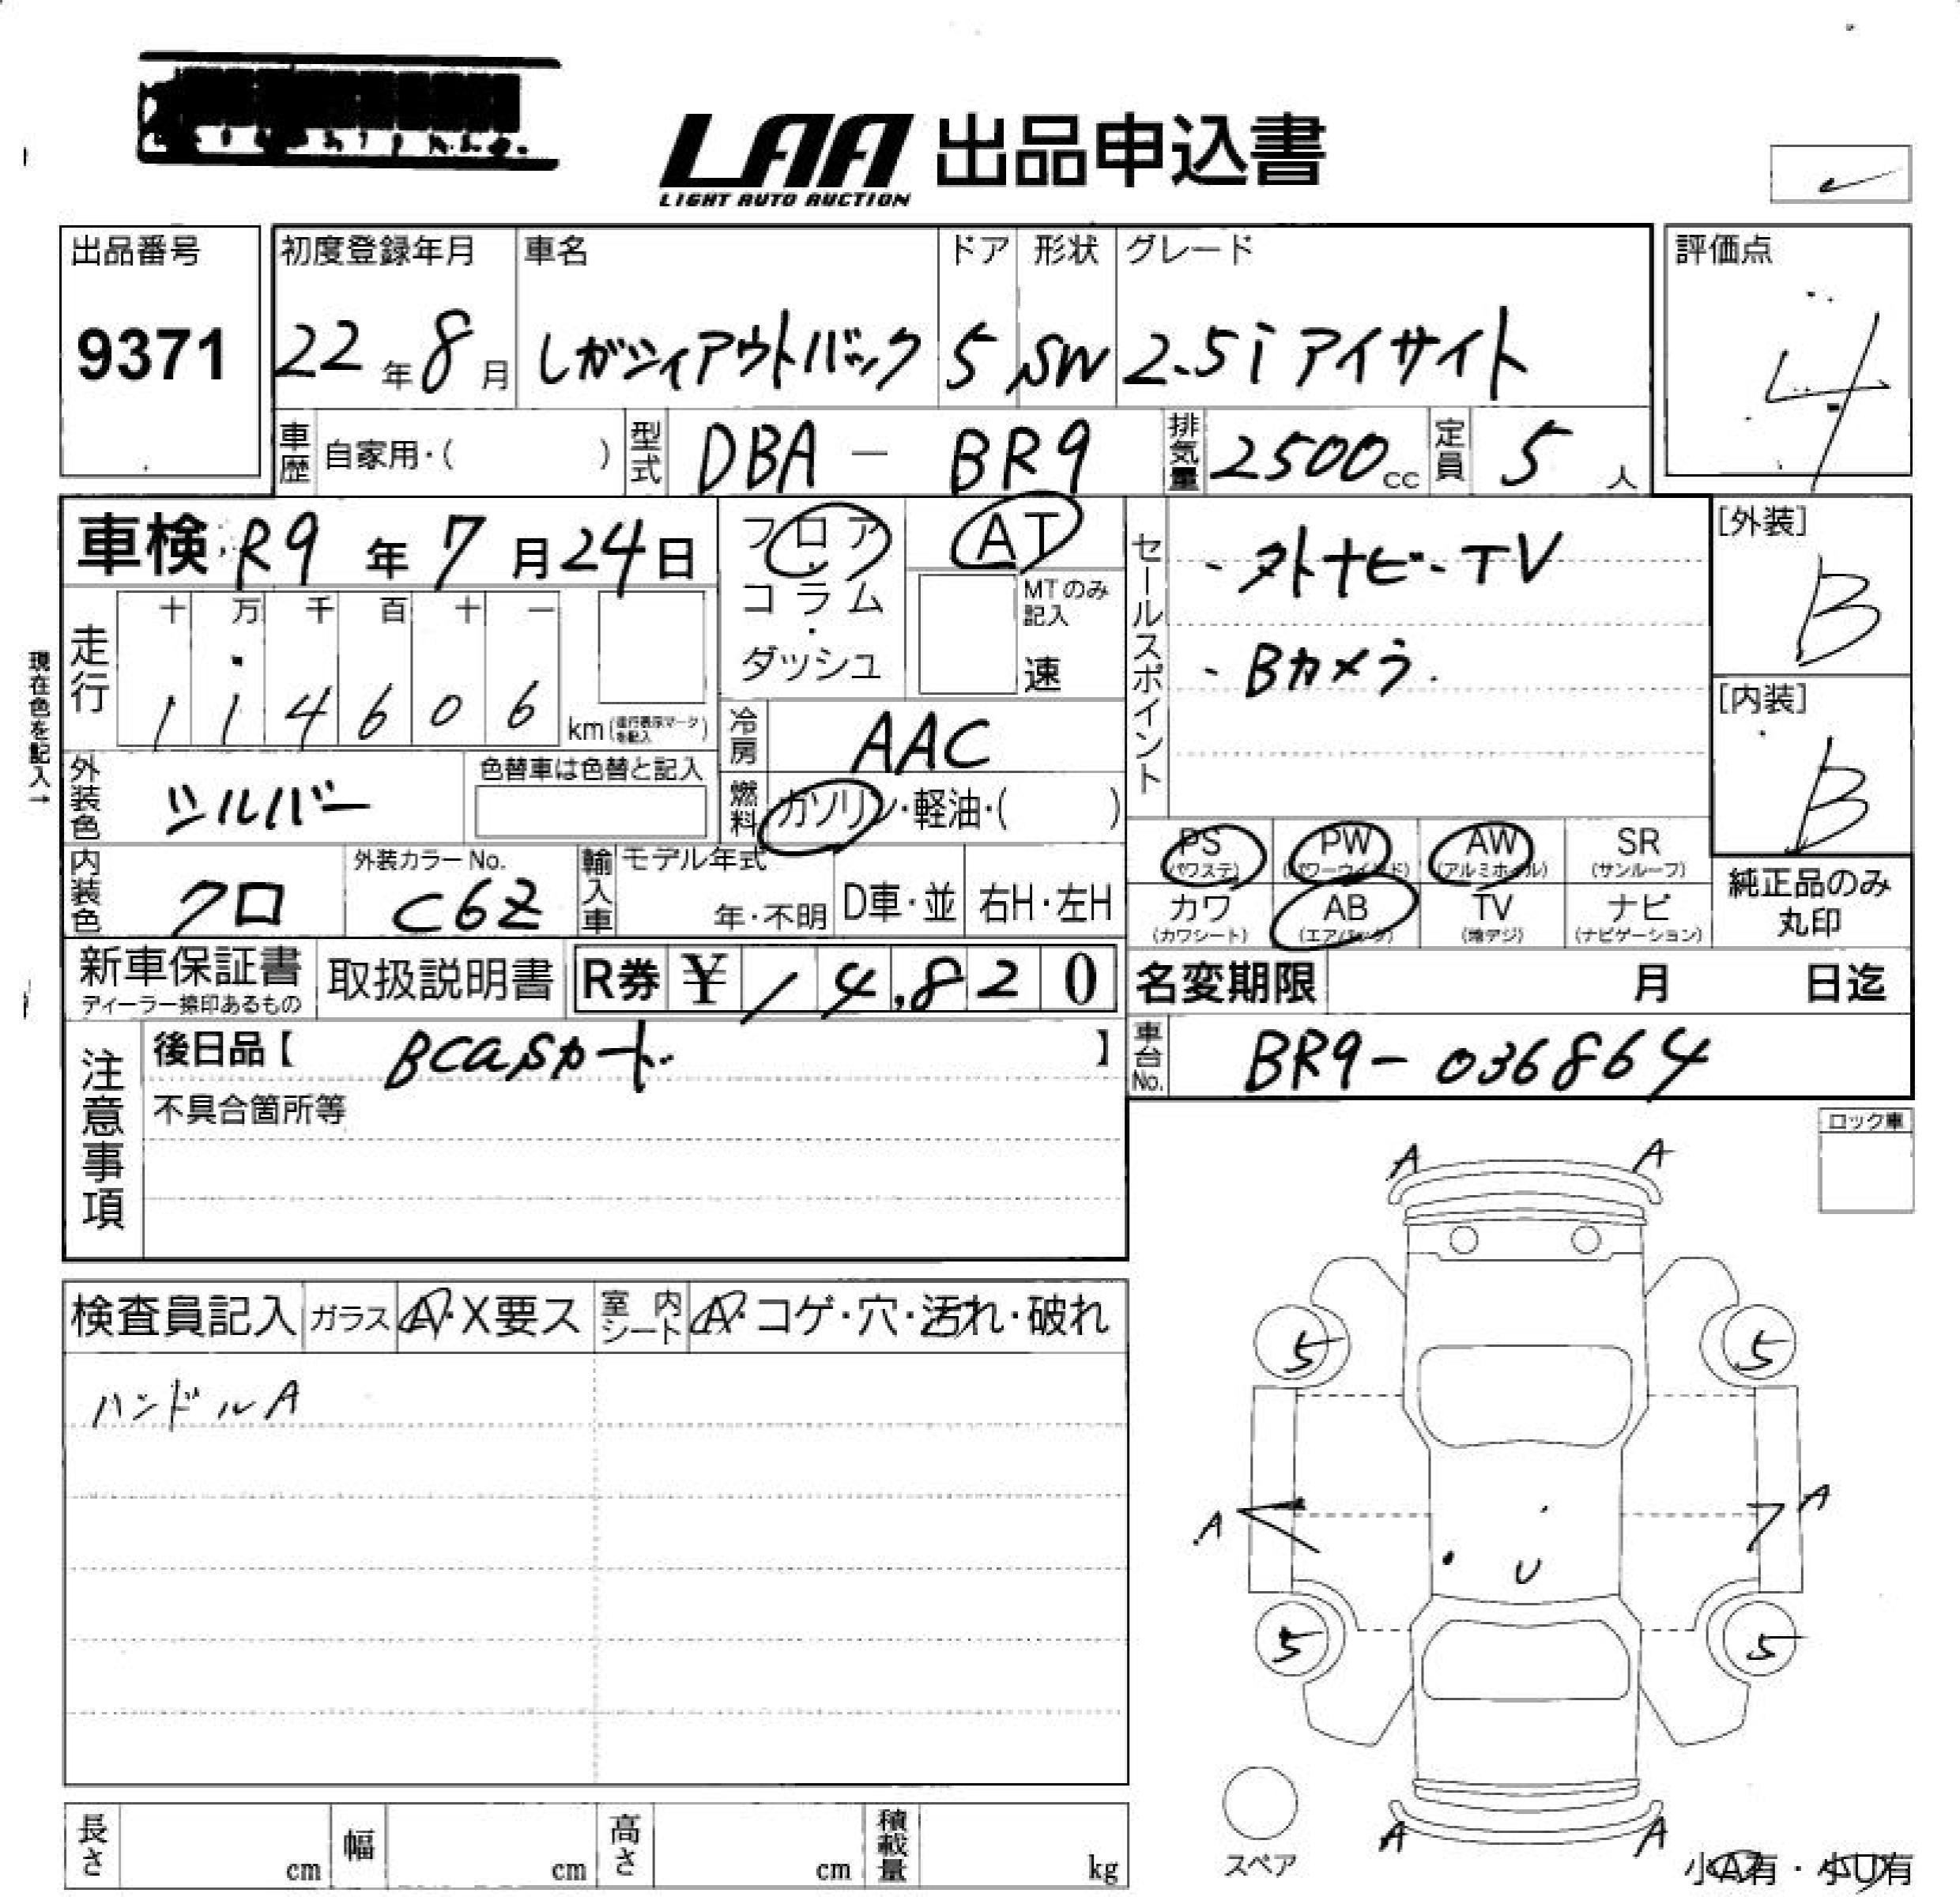 LAA 出品申込書
LIGHT AUTO AUCTION
出品番号
9371
初度登録年月 車名 ドア 形状 グレード
22年8月 レガシィアウトバック 5 SW 2.5i アイサイト
評価点
4
車歴 自家用・( ) 型式 DBA - BR9 排気量 2500cc 定員 5人
車検 R9年7月24日
フロア・コラム・ダッシュ
AT
MTのみ記入
速
セールスポイント
・外ナビ・TV
・Bカメラ.
[外装]
B
[内装]
B
現在色を記入→
走行 十 万 千 百 十 一
1 1 4 6 0 6 km(走行表示マークを記入)
冷房 AAC
外装色 シルバー 色替車は色替と記入
燃料 ガソリン・軽油・( )
PS (パワステ) PW (パワーウインド) AW (アルミホイル) SR (サンルーフ)
カワ (カワシート) AB (エアバック) TV (地デジ) ナビ (ナビゲーション)
純正品のみ丸印
内装色 クロ 外装カラーNo. C6Z 輸入車 モデル年式 年・不明 D車・並 右H・左H
新車保証書 ディーラー捺印あるもの 取扱説明書 R券 ¥ 14,820
名変期限 月 日迄
注意事項
後日品【 BCASカード 】
車台No. BR9-036864
不具合箇所等
ロック車
検査員記入 ガラス A・X要ス 室内シート A・コゲ・穴・汚れ・破れ
ハンドルA
A A
5 5
A A
U
5 5
A A
スペア
小A有・小U有
長さ cm 幅 cm 高さ cm 積載量 kg